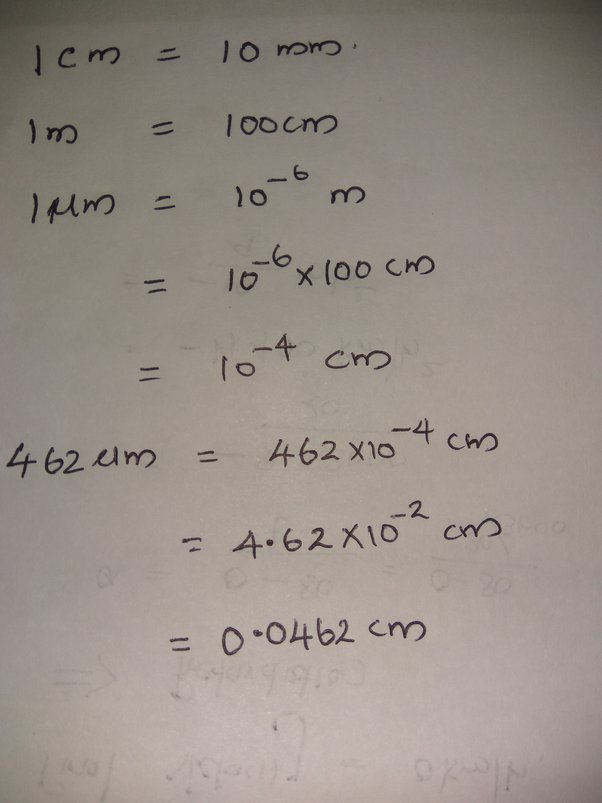 1 cm = 10 mm.
1m = 100cm
1 μm = 10⁻⁶ m
= 10⁻⁶ x 100 cm
= 10⁻⁴ cm
462 μm = 462 x10⁻⁴ cm
= 4.62 x10⁻² cm
= 0.0462 cm